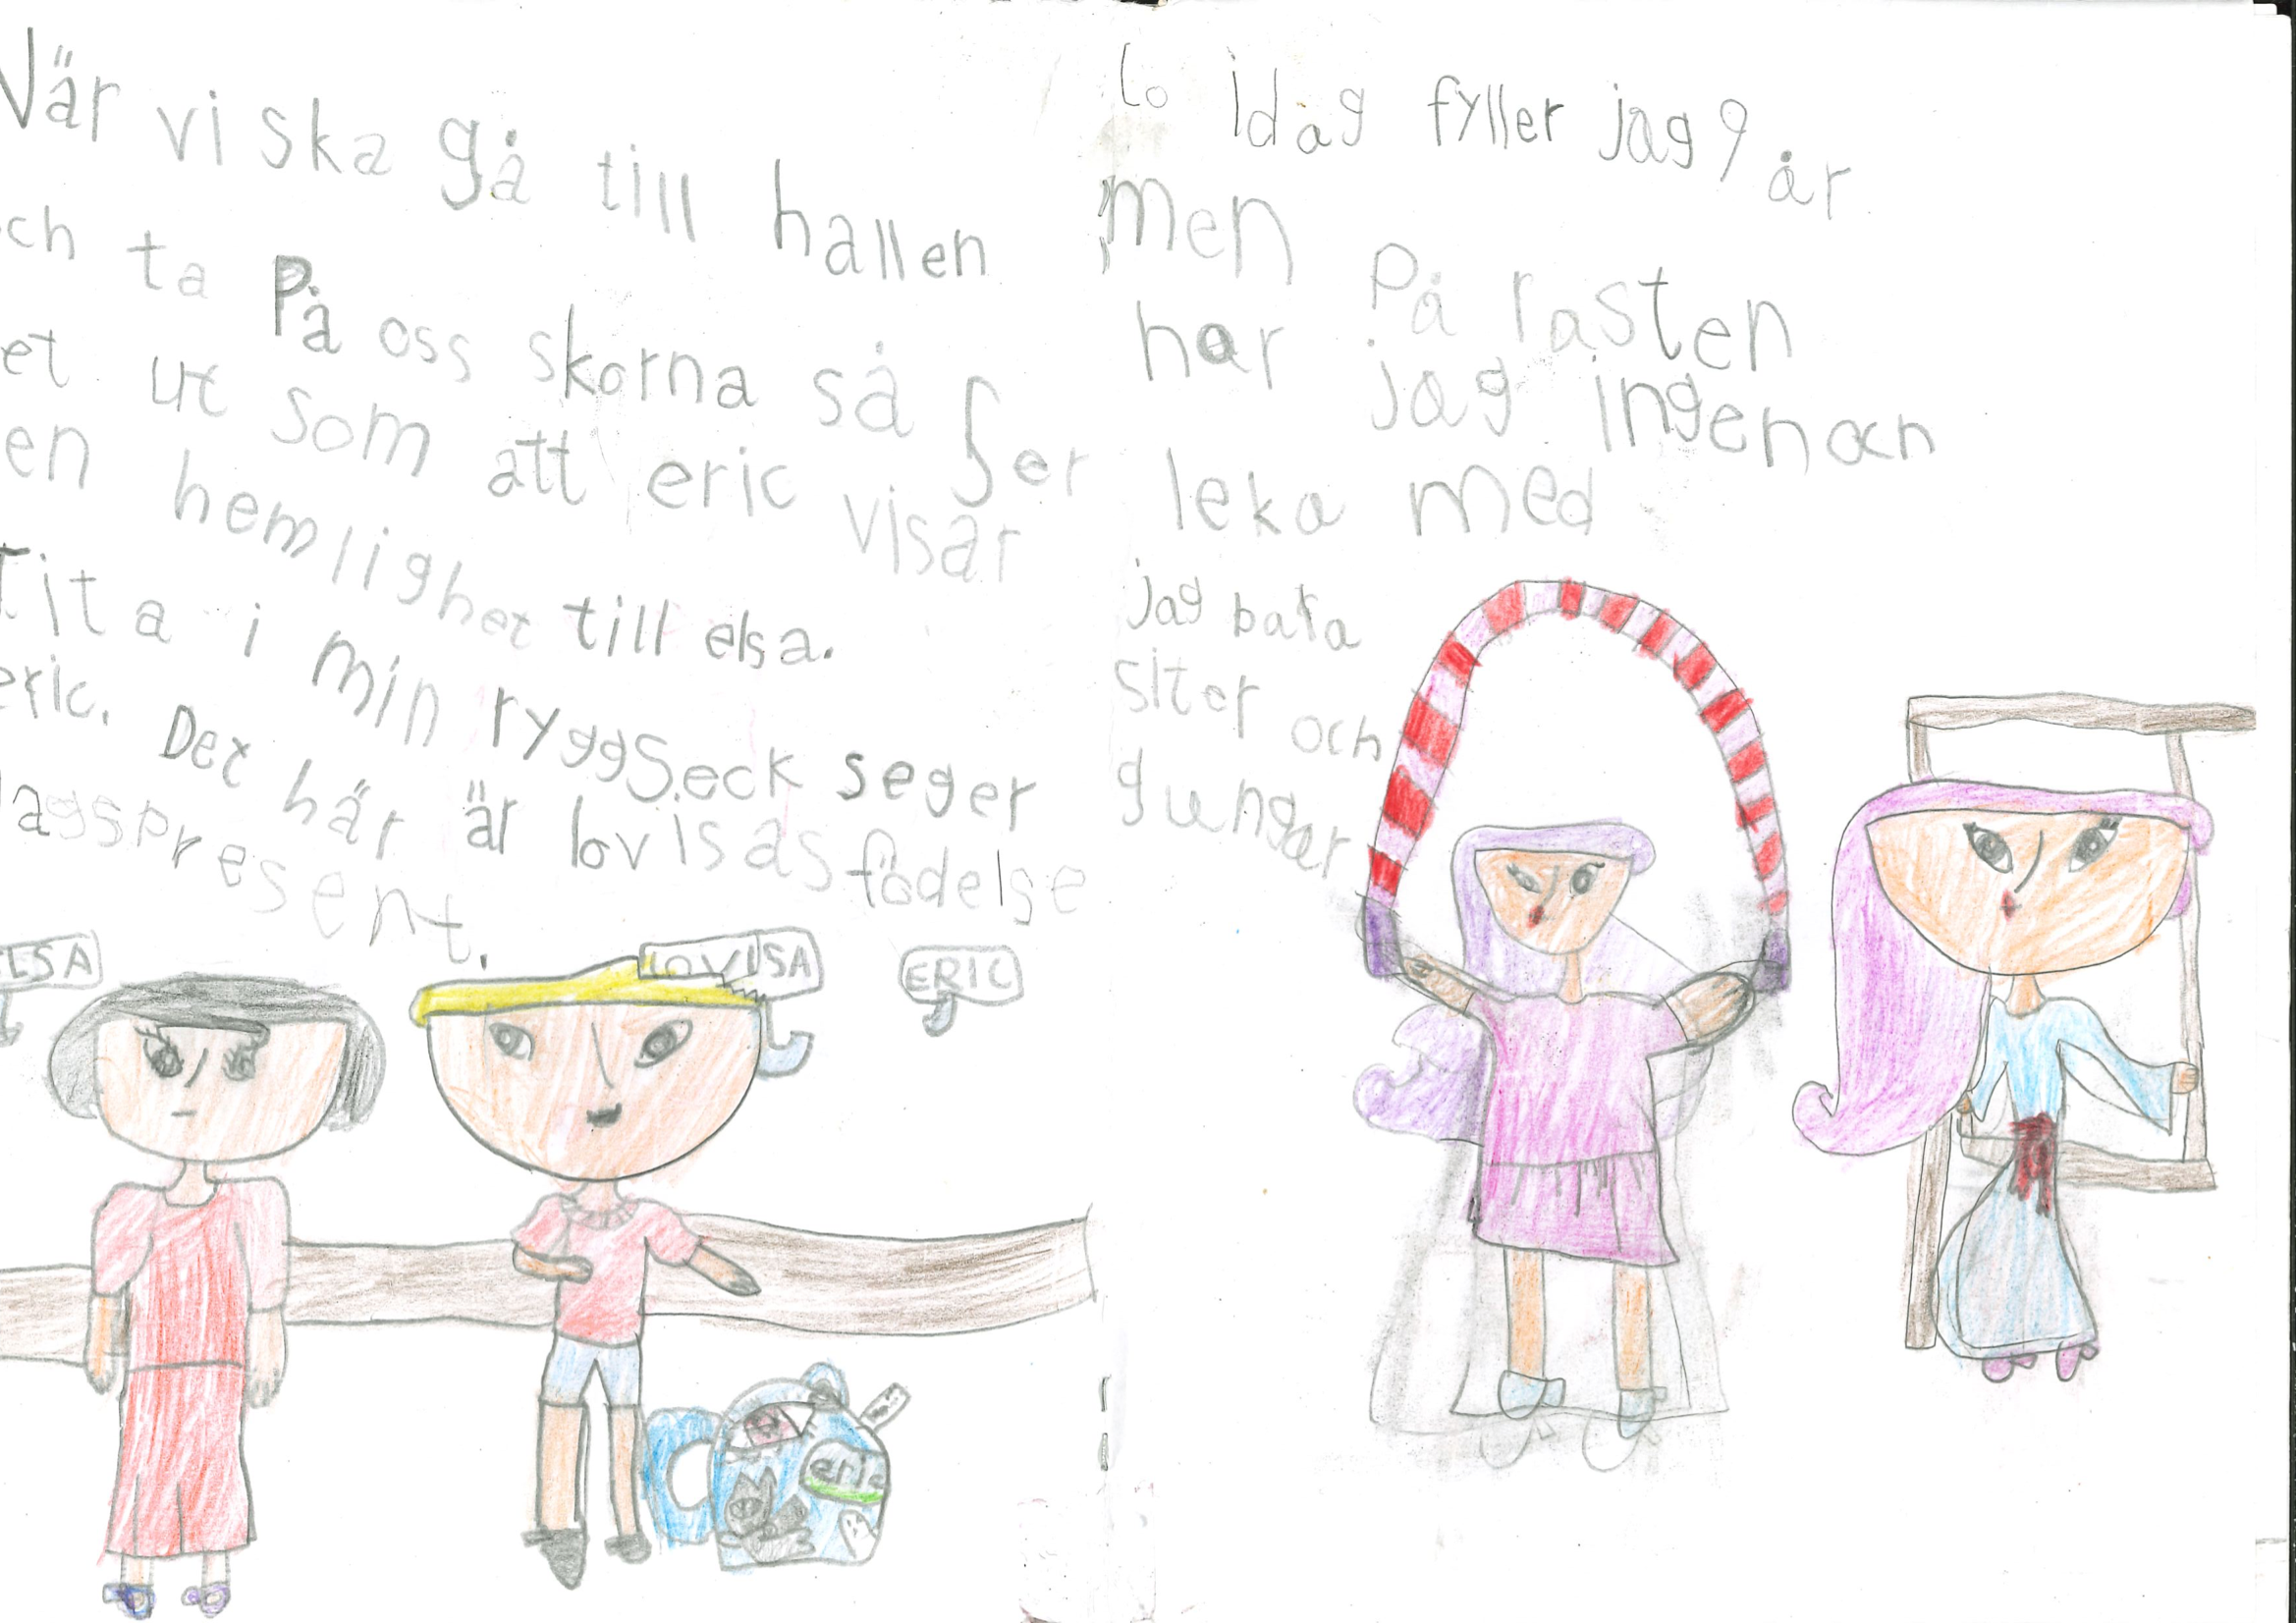 När vi ska gå till hallen
ch ta På oss skorna så ser
et ut som att eric visar
en hemlighet till elsa.
Tita i min ryggseck seger
eric. Det här är lovisas födelse
dagspresent.
ELSA
LOVISA
ERIC
eric
idag fyller jag 9 år
men På rasten
har jag ingen och
leka med
jag bara
siter och
gungar